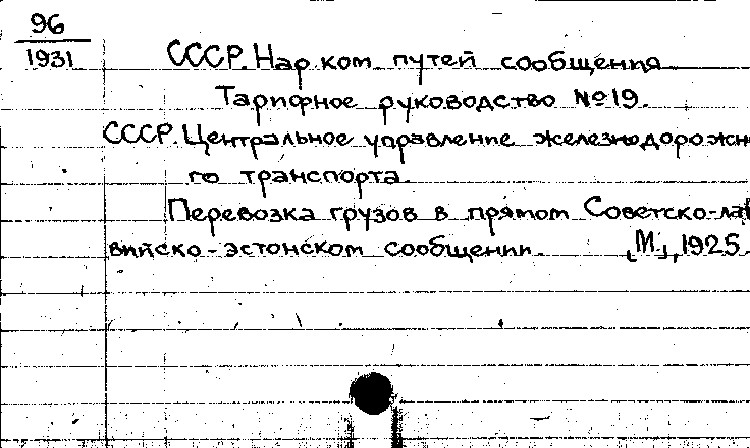 96
1931
СССР. Нар. ком. путей сообщения
Тарифное руководство №19.
СССР. Центральное управление железнодорожно
го транспорта.
Перевозка грузов в прямом Советско-лат
вийско-эстонском сообщении. [М], 1925.